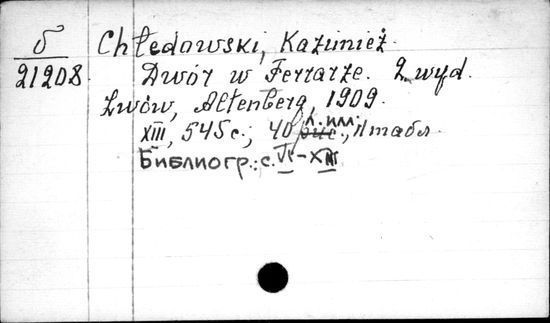 б Chłedowski, Kazimież.
21208. Dwór w Ferrarze. 2 wyd.
Lwów, Altenberg, 1909.
XIII, 545 с.; 40 л. илл., 11 табл.
Библиогр.: с. VI-XIII